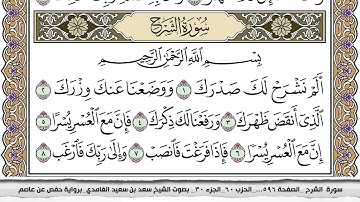 سُورَةُ الشَّرْحِ
بِسْمِ اللَّهِ الرَّحْمَٰنِ الرَّحِيمِ
أَلَمْ نَشْرَحْ لَكَ صَدْرَكَ ١ وَوَضَعْنَا عَنكَ وِزْرَكَ ٢
الَّذِي أَنقَضَ ظَهْرَكَ ٣ وَرَفَعْنَا لَكَ ذِكْرَكَ ٤ فَإِنَّ مَعَ الْعُسْرِ يُسْرًا ٥
إِنَّ مَعَ الْعُسْرِ يُسْرًا ٦ فَإِذَا فَرَغْتَ فَانصَبْ ٧ وَإِلَىٰ رَبِّكَ فَارْغَب ٨
سورة الشرح _الصفحة ٥٩٦ ... الحزب ٦٠_الجزء ٣٠_ بصوت الشيخ سعد بن سعيد الغامدي برواية حفص عن عاصم